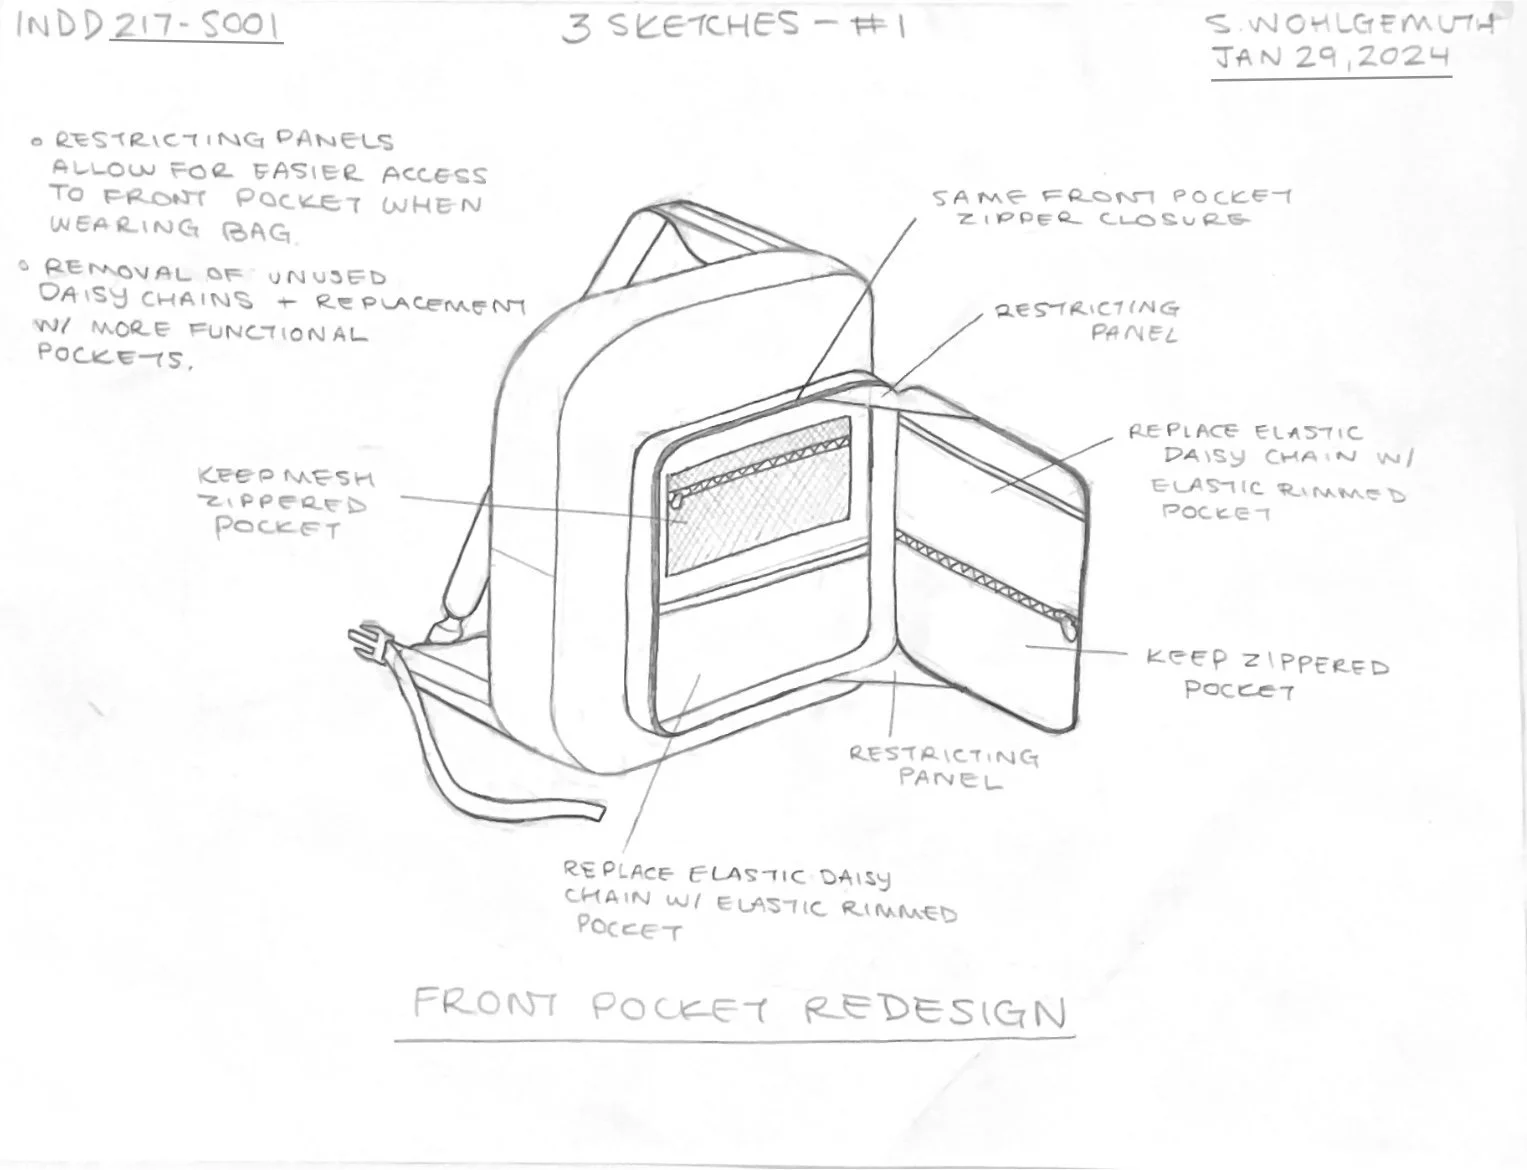 INDD 217-S001
3 SKETCHES - #1
S. WOHLGEMUTH
JAN 29, 2024
RESTRICTING PANELS
ALLOW FOR EASIER ACCESS
TO FRONT POCKET WHEN
WEARING BAG.
REMOVAL OF UNUSED
DAISY CHAINS + REPLACEMENT
W/ MORE FUNCTIONAL
POCKETS.
SAME FRONT POCKET
ZIPPER CLOSURE
RESTRICTING
PANEL
REPLACE ELASTIC
DAISY CHAIN W/
ELASTIC RIMMED
POCKET
KEEP MESH
ZIPPERED
POCKET
KEEP ZIPPERED
POCKET
RESTRICTING
PANEL
REPLACE ELASTIC DAISY
CHAIN W/ ELASTIC RIMMED
POCKET
FRONT POCKET REDESIGN